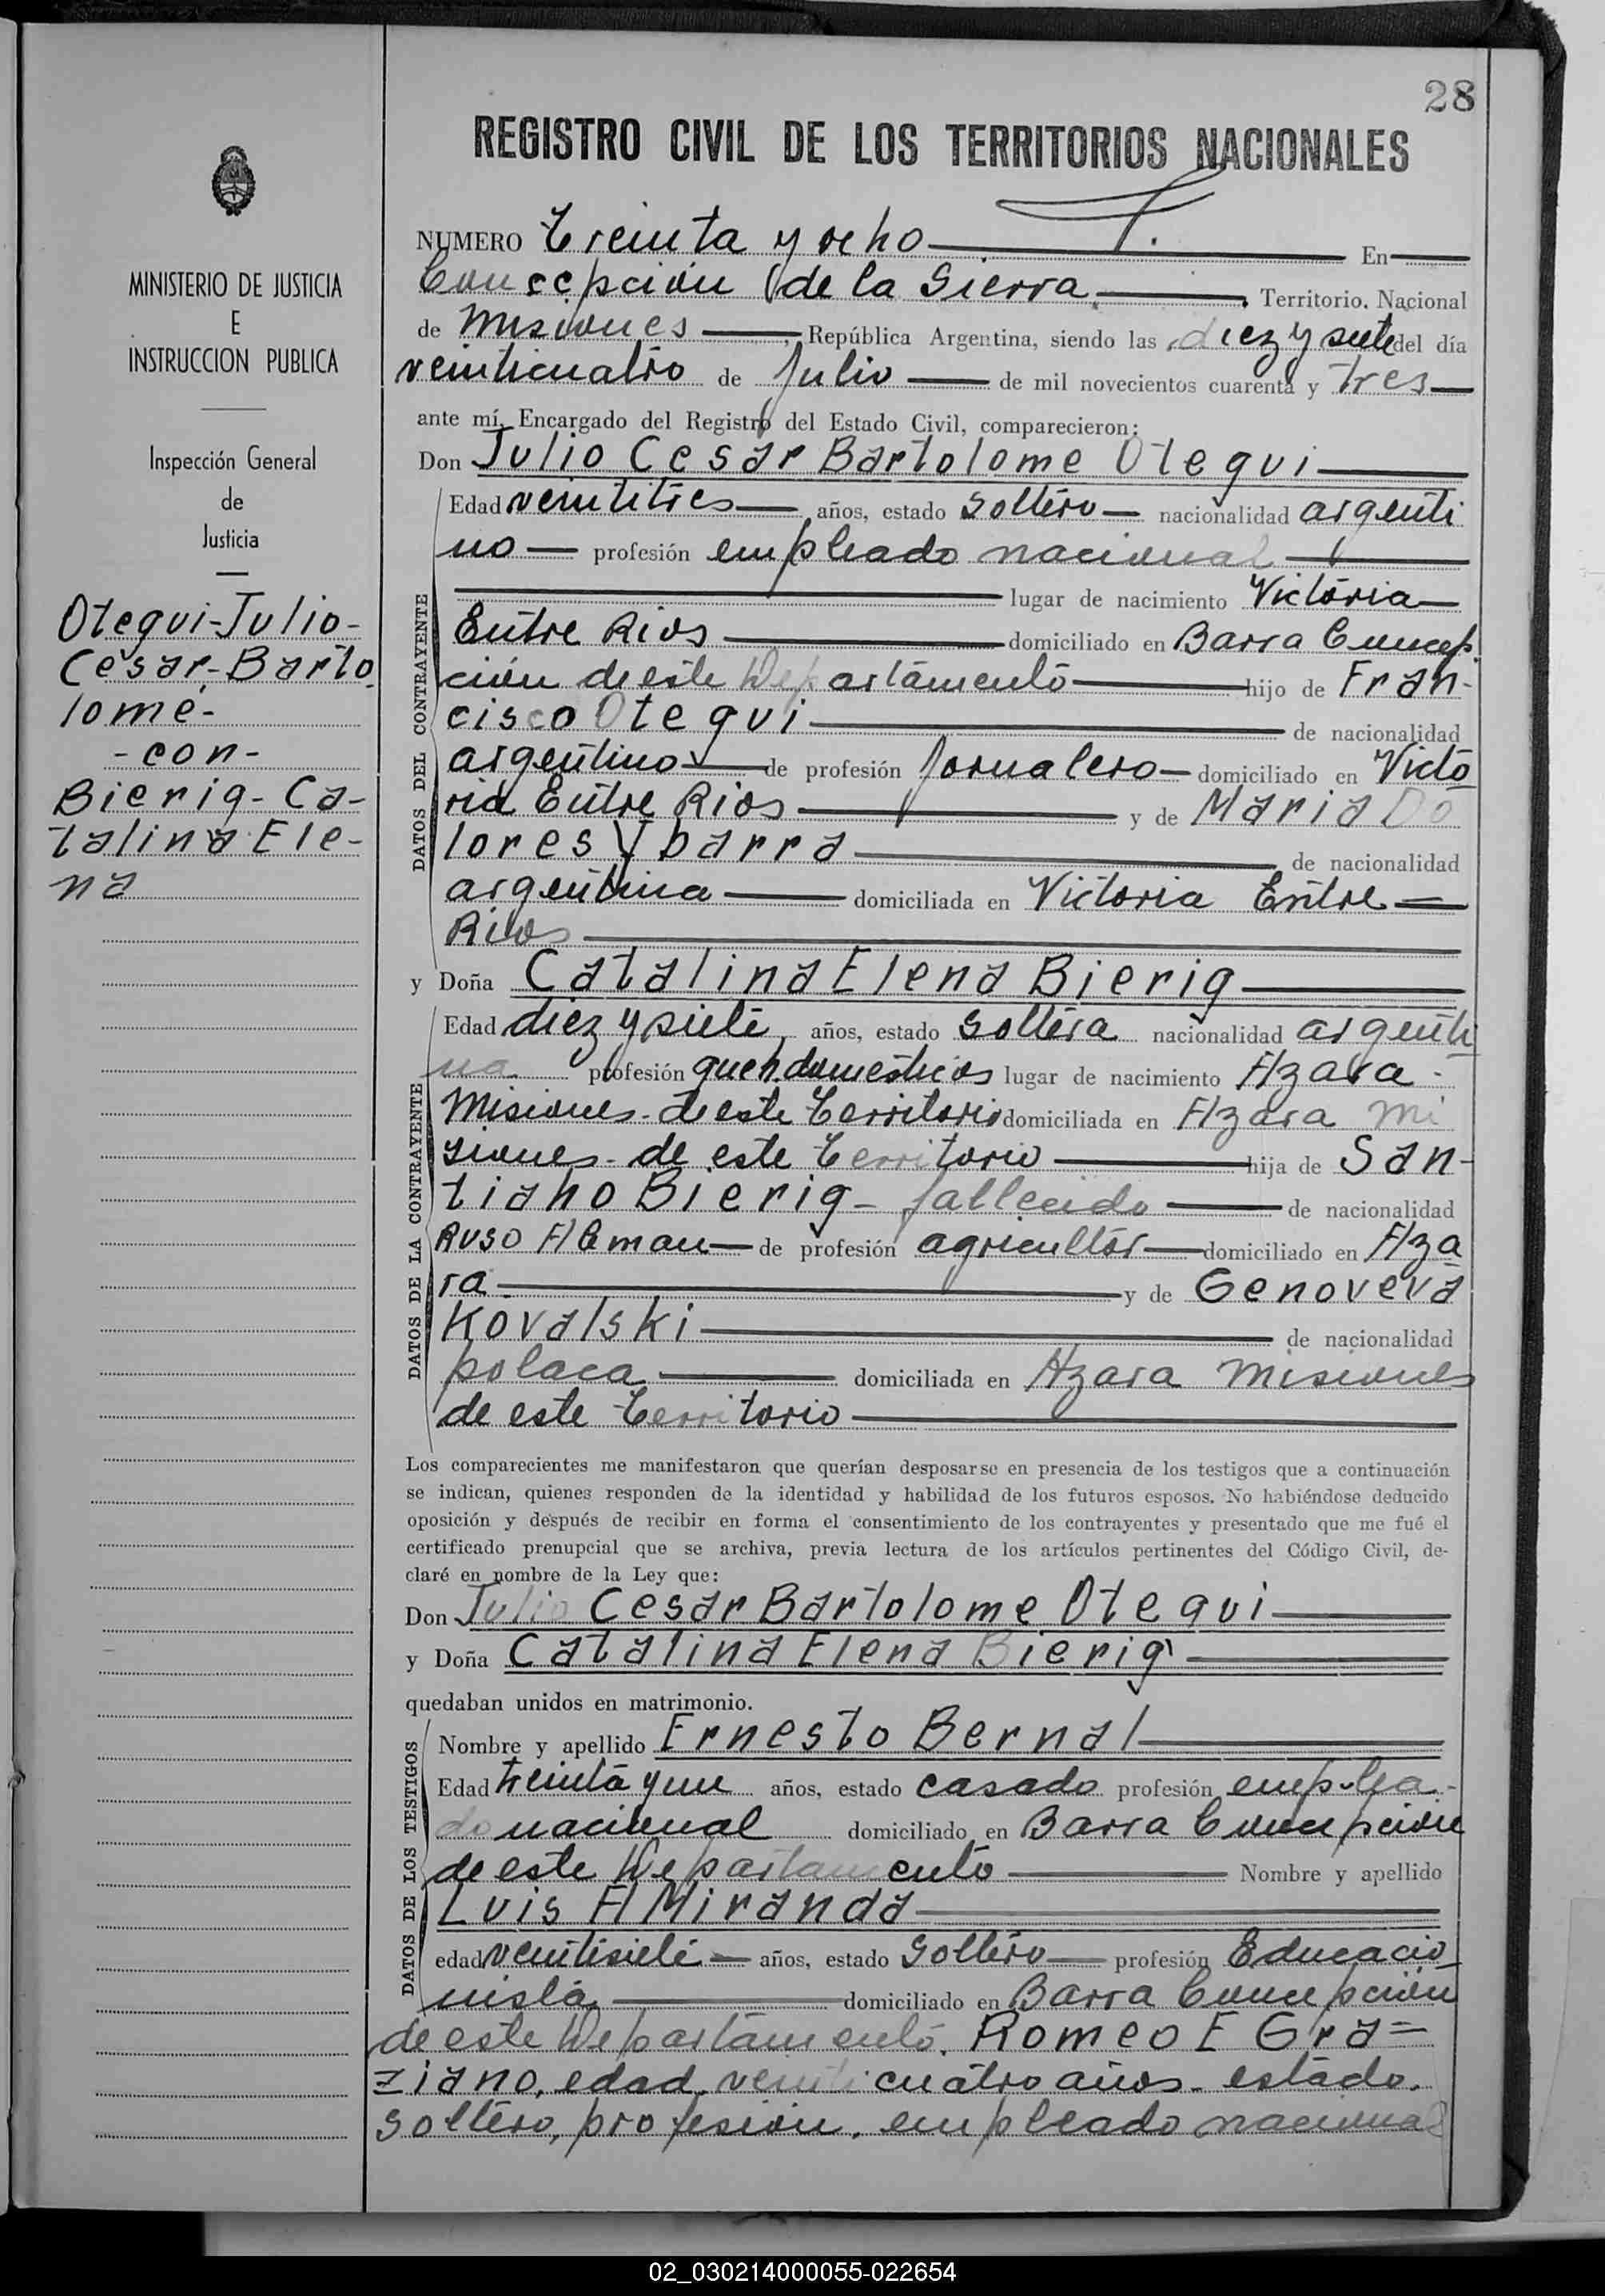 28
REGISTRO CIVIL DE LOS TERRITORIOS NACIONALES
MINISTERIO DE JUSTICIA
E
INSTRUCCION PUBLICA
Inspección General
de
Justicia
Otegui-Julio-
Cesar-Barto
lome-
-con-
Bierig-Ca-
talina Ele-
na
NUMERO Treinta y ocho En
Concepción de la Sierra, Territorio Nacional
de Misiones, República Argentina, siendo las diez y siete del día
veinticuatro de Julio de mil novecientos cuarenta y tres
ante mí, Encargado del Registro del Estado Civil, comparecieron:
Don Julio Cesar Bartolome Otegui
DATOS DEL CONTRAYENTE
Edad veintitres años, estado soltero nacionalidad argenti
no profesión empleado nacional
lugar de nacimiento Victoria
Entre Rios domiciliado en Barra Concep
ción de este Departamento hijo de Fran-
cisco Otegui de nacionalidad
argentino de profesión Jornalero domiciliado en Victo
ria Entre Rios y de Maria Do
lores Ybarra de nacionalidad
argentina domiciliada en Victoria Entre
Rios
y Doña Catalina Elena Bierig
DATOS DE LA CONTRAYENTE
Edad diez y siete, años, estado soltera nacionalidad argenti
na profesión queh. domesticos lugar de nacimiento Azara-
Misiones-de este Territorio domiciliada en Azara Mi
siones-de este Territorio hija de San-
tiaho Bierig-fallecido de nacionalidad
Ruso Aleman de profesión agricultor domiciliado en Aza
ra y de Genoveva
Kovalski de nacionalidad
polaca domiciliada en Azara Misiones
de este Territorio
Los comparecientes me manifestaron que querían desposarse en presencia de los testigos que a continuación
se indican, quienes responden de la identidad y habilidad de los futuros esposos. No habiéndose deducido
oposición y después de recibir en forma el consentimiento de los contrayentes y presentado que me fué el
certificado prenupcial que se archiva, previa lectura de los artículos pertinentes del Código Civil, de-
claré en nombre de la Ley que:
Don Julio Cesar Bartolome Otegui
y Doña Catalina Elena Bierig
quedaban unidos en matrimonio.
DATOS DE LOS TESTIGOS
Nombre y apellido Ernesto Bernal
Edad treinta y un años, estado casado profesión emplea-
do nacional domiciliado en Barra Concepción
de este Departamento Nombre y apellido
Luis A Miranda
edad veintisiete años, estado soltero profesión Educacio
nista domiciliado en Barra Concepción
de este Departamento. Romeo E Gra=
ziano, edad, veinticuatro años-estado,
soltero, profesión, empleado nacional
02_030214000055-022654